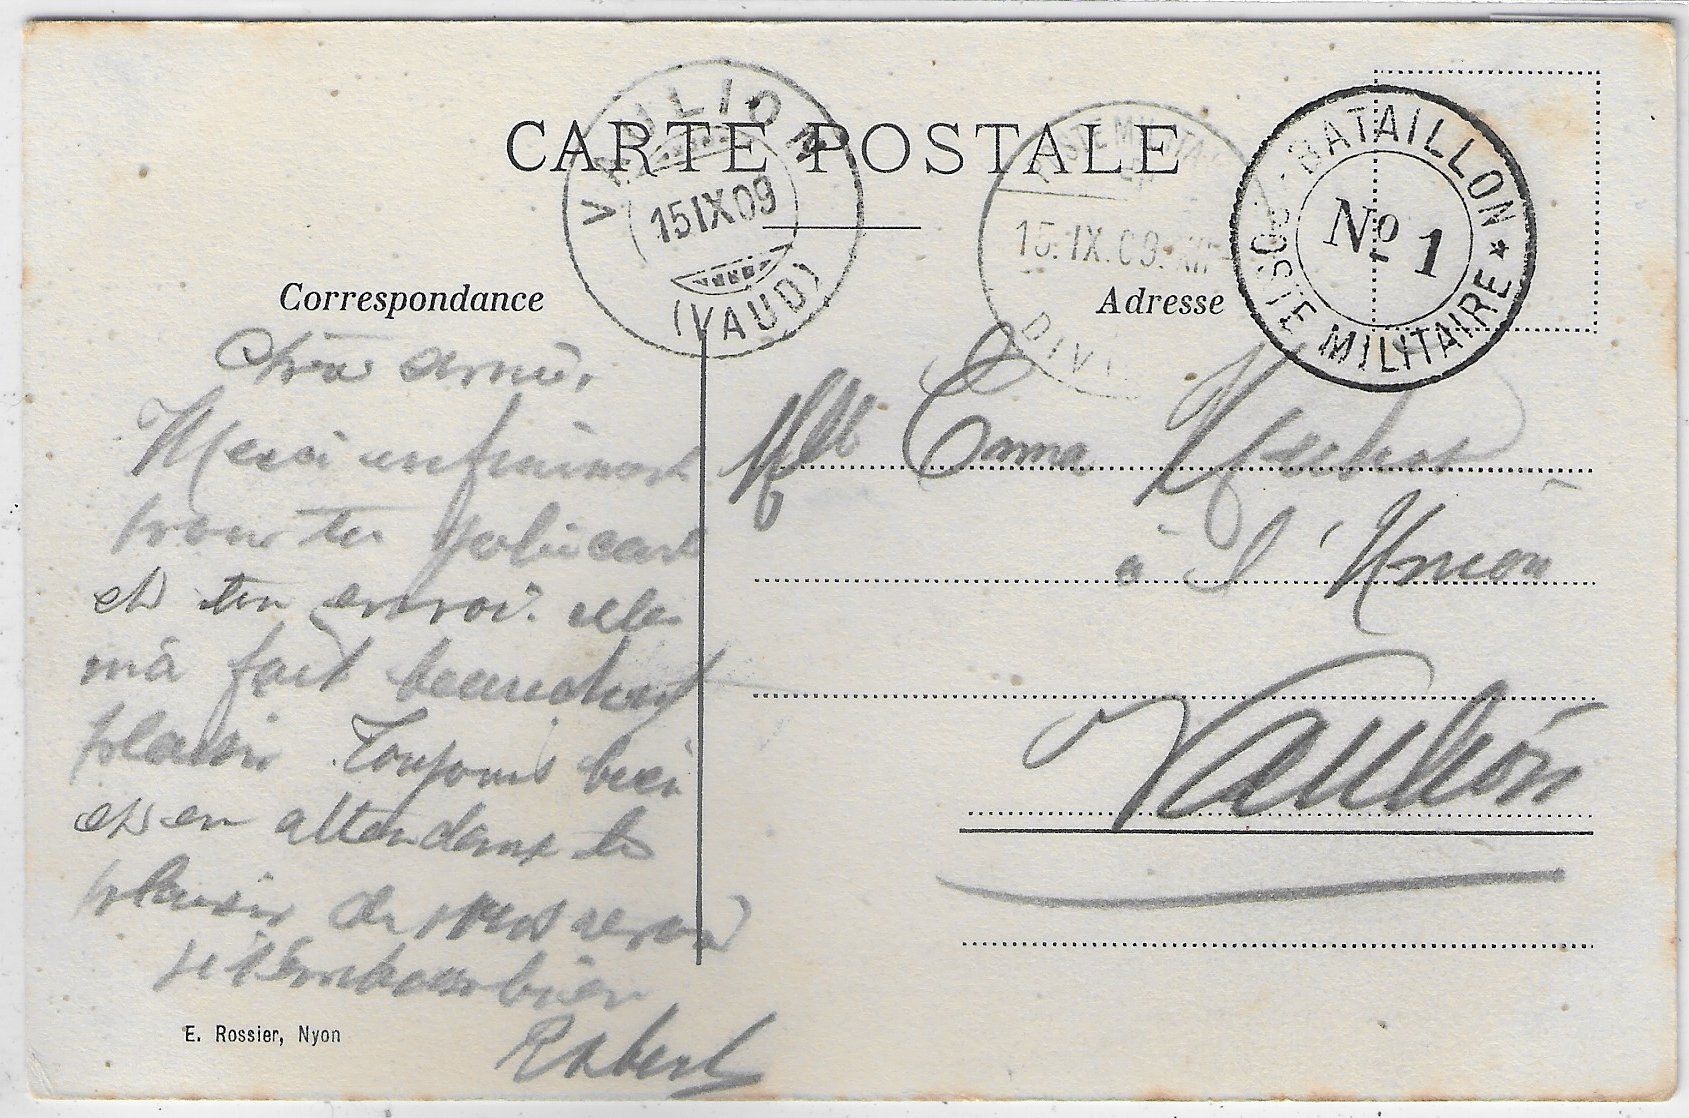 CARTE POSTALE
VAULION
15 IX 09
(VAUD)
POSTE MILITAI
15.IX.09. XII
DIVI
BATAILLON
Nº 1
POSTE MILITAIRE
Correspondance
Adresse
Chère amie,
Merci infiniment
pour ta jolie carte
et ton envoi. elle
m'a fait beaucoup
plaisir. Toujours bien
et en attendant le
plaisir de nous revoir
je t'embrasse bien
Robert
Mlle Emma
à l'Union
Vaulion
E. Rossier, Nyon